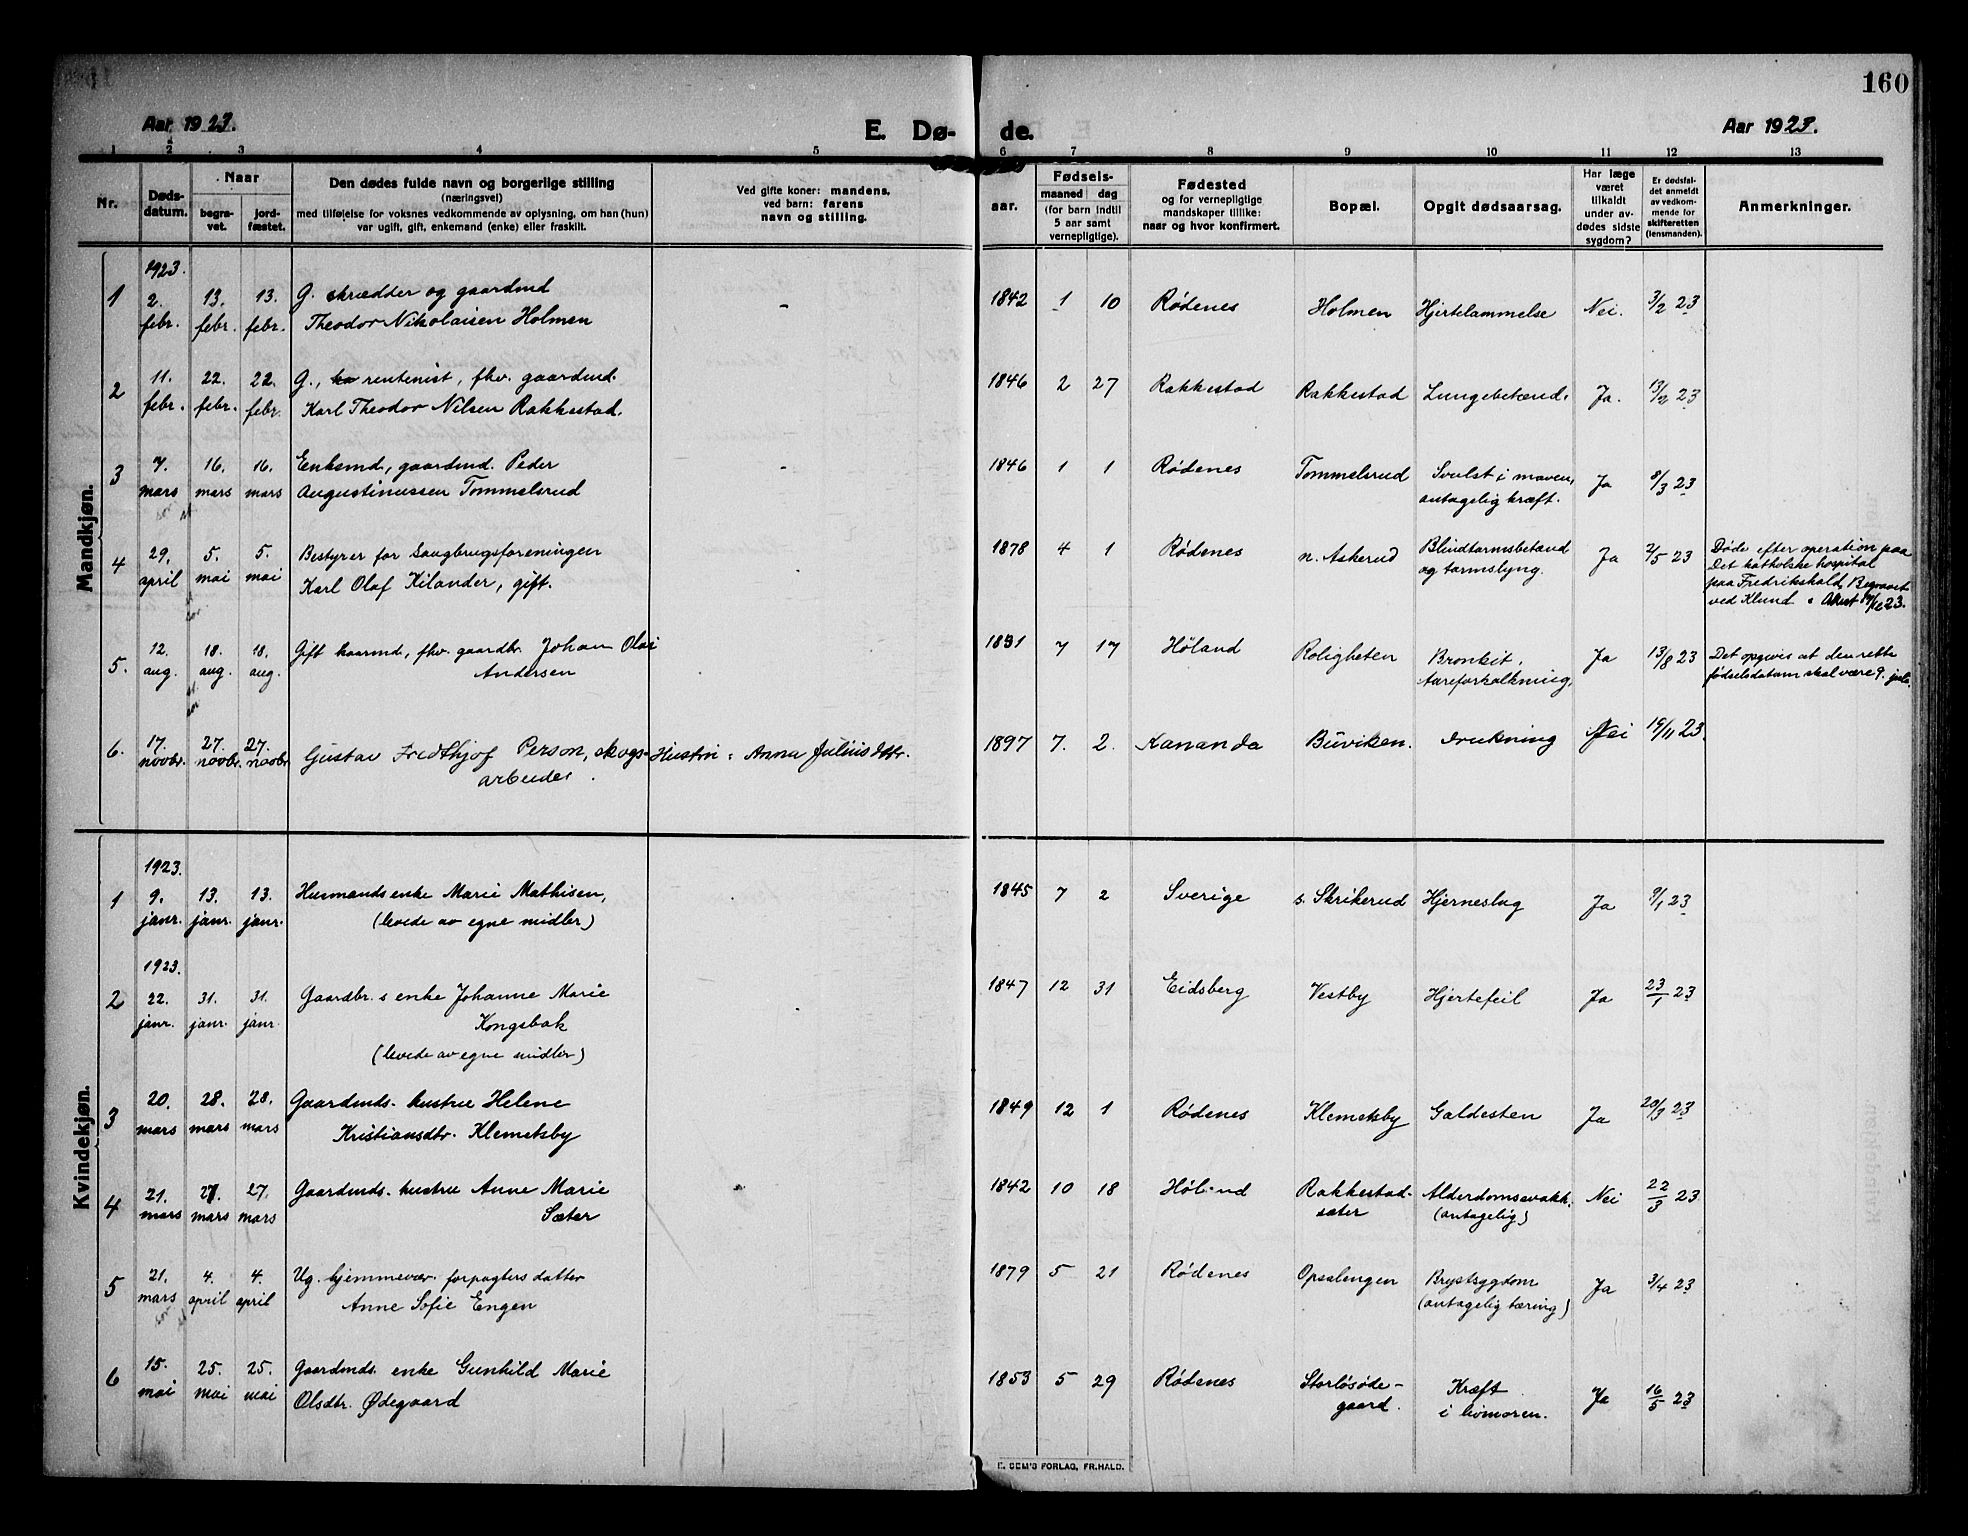 160
Aar 1923.
E. Dø- de.
Aar 1923.
1 2 3 4 5 6 7 8 9 10 11 12 13
Nr.
Døds-
datum.
Naar
begra-
vet.
jord-
fæstet.
Den dødes fulde navn og borgerlige stilling
(næringsvei)
med tilføielse for voksnes vedkommende av oplysning, om han (hun)
var ugift, gift, enkemand (enke) eller fraskilt.
Ved gifte koner: mandens,
ved barn: farens
navn og stilling.
Fødsels-
aar.
maaned dag
(for barn indtil
5 aar samt
vernepligtige).
Fødested
og for vernepligtige
mandskaper tillike:
naar og hvor konfirmert.
Bopæl.
Opgit dødsaarsag.
Har læge
været
tilkaldt
under av-
dødes sidste
sygdom?
Er dødsfal-
det anmeldt
av vedkom-
mende for
skifteretten
(lensmanden).
Anmerkninger.
Mandkjøn.
1923.
1 2. febr. 13. febr. 13. febr. G. skrædder og gaardmd
Theodor Nikolaisen Holmen
- 1842 1 10 Rødenes Holmen Hjertelammelse Nei. 3/2 23
2 11. febr. 22. febr. 22. febr. G., rentenist, fhv. gaardmd.
Karl Theodor Nilsen Rakkestad.
1846 2 27 Rakkestad Rakkestad Lungebetænd. Ja. 13/2 23
3 7. mars 16. mars 16. mars Enkemd, gaardmd. Peder
Augustinussen Tommelsrud
- 1846 1 1 Rødenes Tommelsrud Svulst i maven,
antagelig kræft. Ja 8/3 23
4 29. april 5. mai 5. mai Bestyrer for Saugbrugsforeningen
Karl Olaf Kilander, gift.
1878 4 1 Rødenes n. Askerud Blindtarmsbetænd
og tarmslyng. Ja 2/5 23
Døde efter operation paa
Det katholske hospital
paa Fredrikshald. Begravet
ved Klund
5. 12. aug. 18. aug. 18. aug. Gift kaarmd, fhv. gaardbr. Johan Olai
Andersen
1831 7 17 Høland Roligheten Bronkit,
Aareforkalkning, Ja 13/8 23
Det opgives at den rette
fødselsdatum skal være 9. juli.
6. 17. novbr. 27. novbr. 27. novbr. Gustav Fredthjof Person, skogs-
arbeider.
Hustru: Anna Juliusdtr.
1897 7. 2. Kananda Buviken. drukning Nei 19/11 23.
Kvindekjøn.
1923.
1 9. janr. 13. janr. 13. janr. Husmands enke Marie Mathisen,
(levede av egne midler)
1845 7 2 Sverige s. Skrikerud Hjerneslag Ja 9/1 23
1923.
2 22. janr. 31. janr. 31. janr. Gaardbr.s enke Johanne Marie
Kongsbak
(levede av egne midler)
1847 12 31 Eidsberg Vestby Hjertefeil Ja 23/1 23
3 20. mars 28. mars 28. mars Gaardmds. hustru Helene
Kristiansdtr. Klemetsby
1849 12 1 Rødenes Klemetsby Galdesten Ja 20/3 23
4 21. mars 27. mars 27. mars Gaardmds. hustru Anne Marie
Sæter
1842 10 18 Høland Rakkestad-
sæter Alderdomssvakh.
(antagelig) Nei 22/3 23
5 21. mars 4. april 4. april Ug. hjemmevær. forpagters datter
Anne Sofie Engen
1879 5 21 Rødenes Opsalengen Brystsygdom
(antagelig tæring) Ja 3/4 23
6 15. mai 25. mai 25. mai Gaardmds. enke Gunhild Marie
Olsdtr. Ødegaard
1853 5 29 Rødenes Storløsøde-
gaard. Kræft
i livmoren. Ja 16/5 23
E. SEM'S FORLAG, FR.HALD.